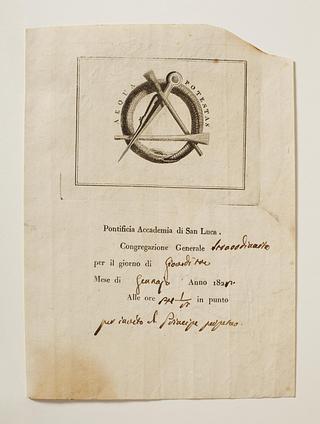 AEQUA POTESTAS
Pontificia Accademia di San Luca.
Congregazione Generale straordinaria
per il giorno di
Mese di Gennajo Anno 182
Alle ore in punto
per invito del Principe perpetuo.